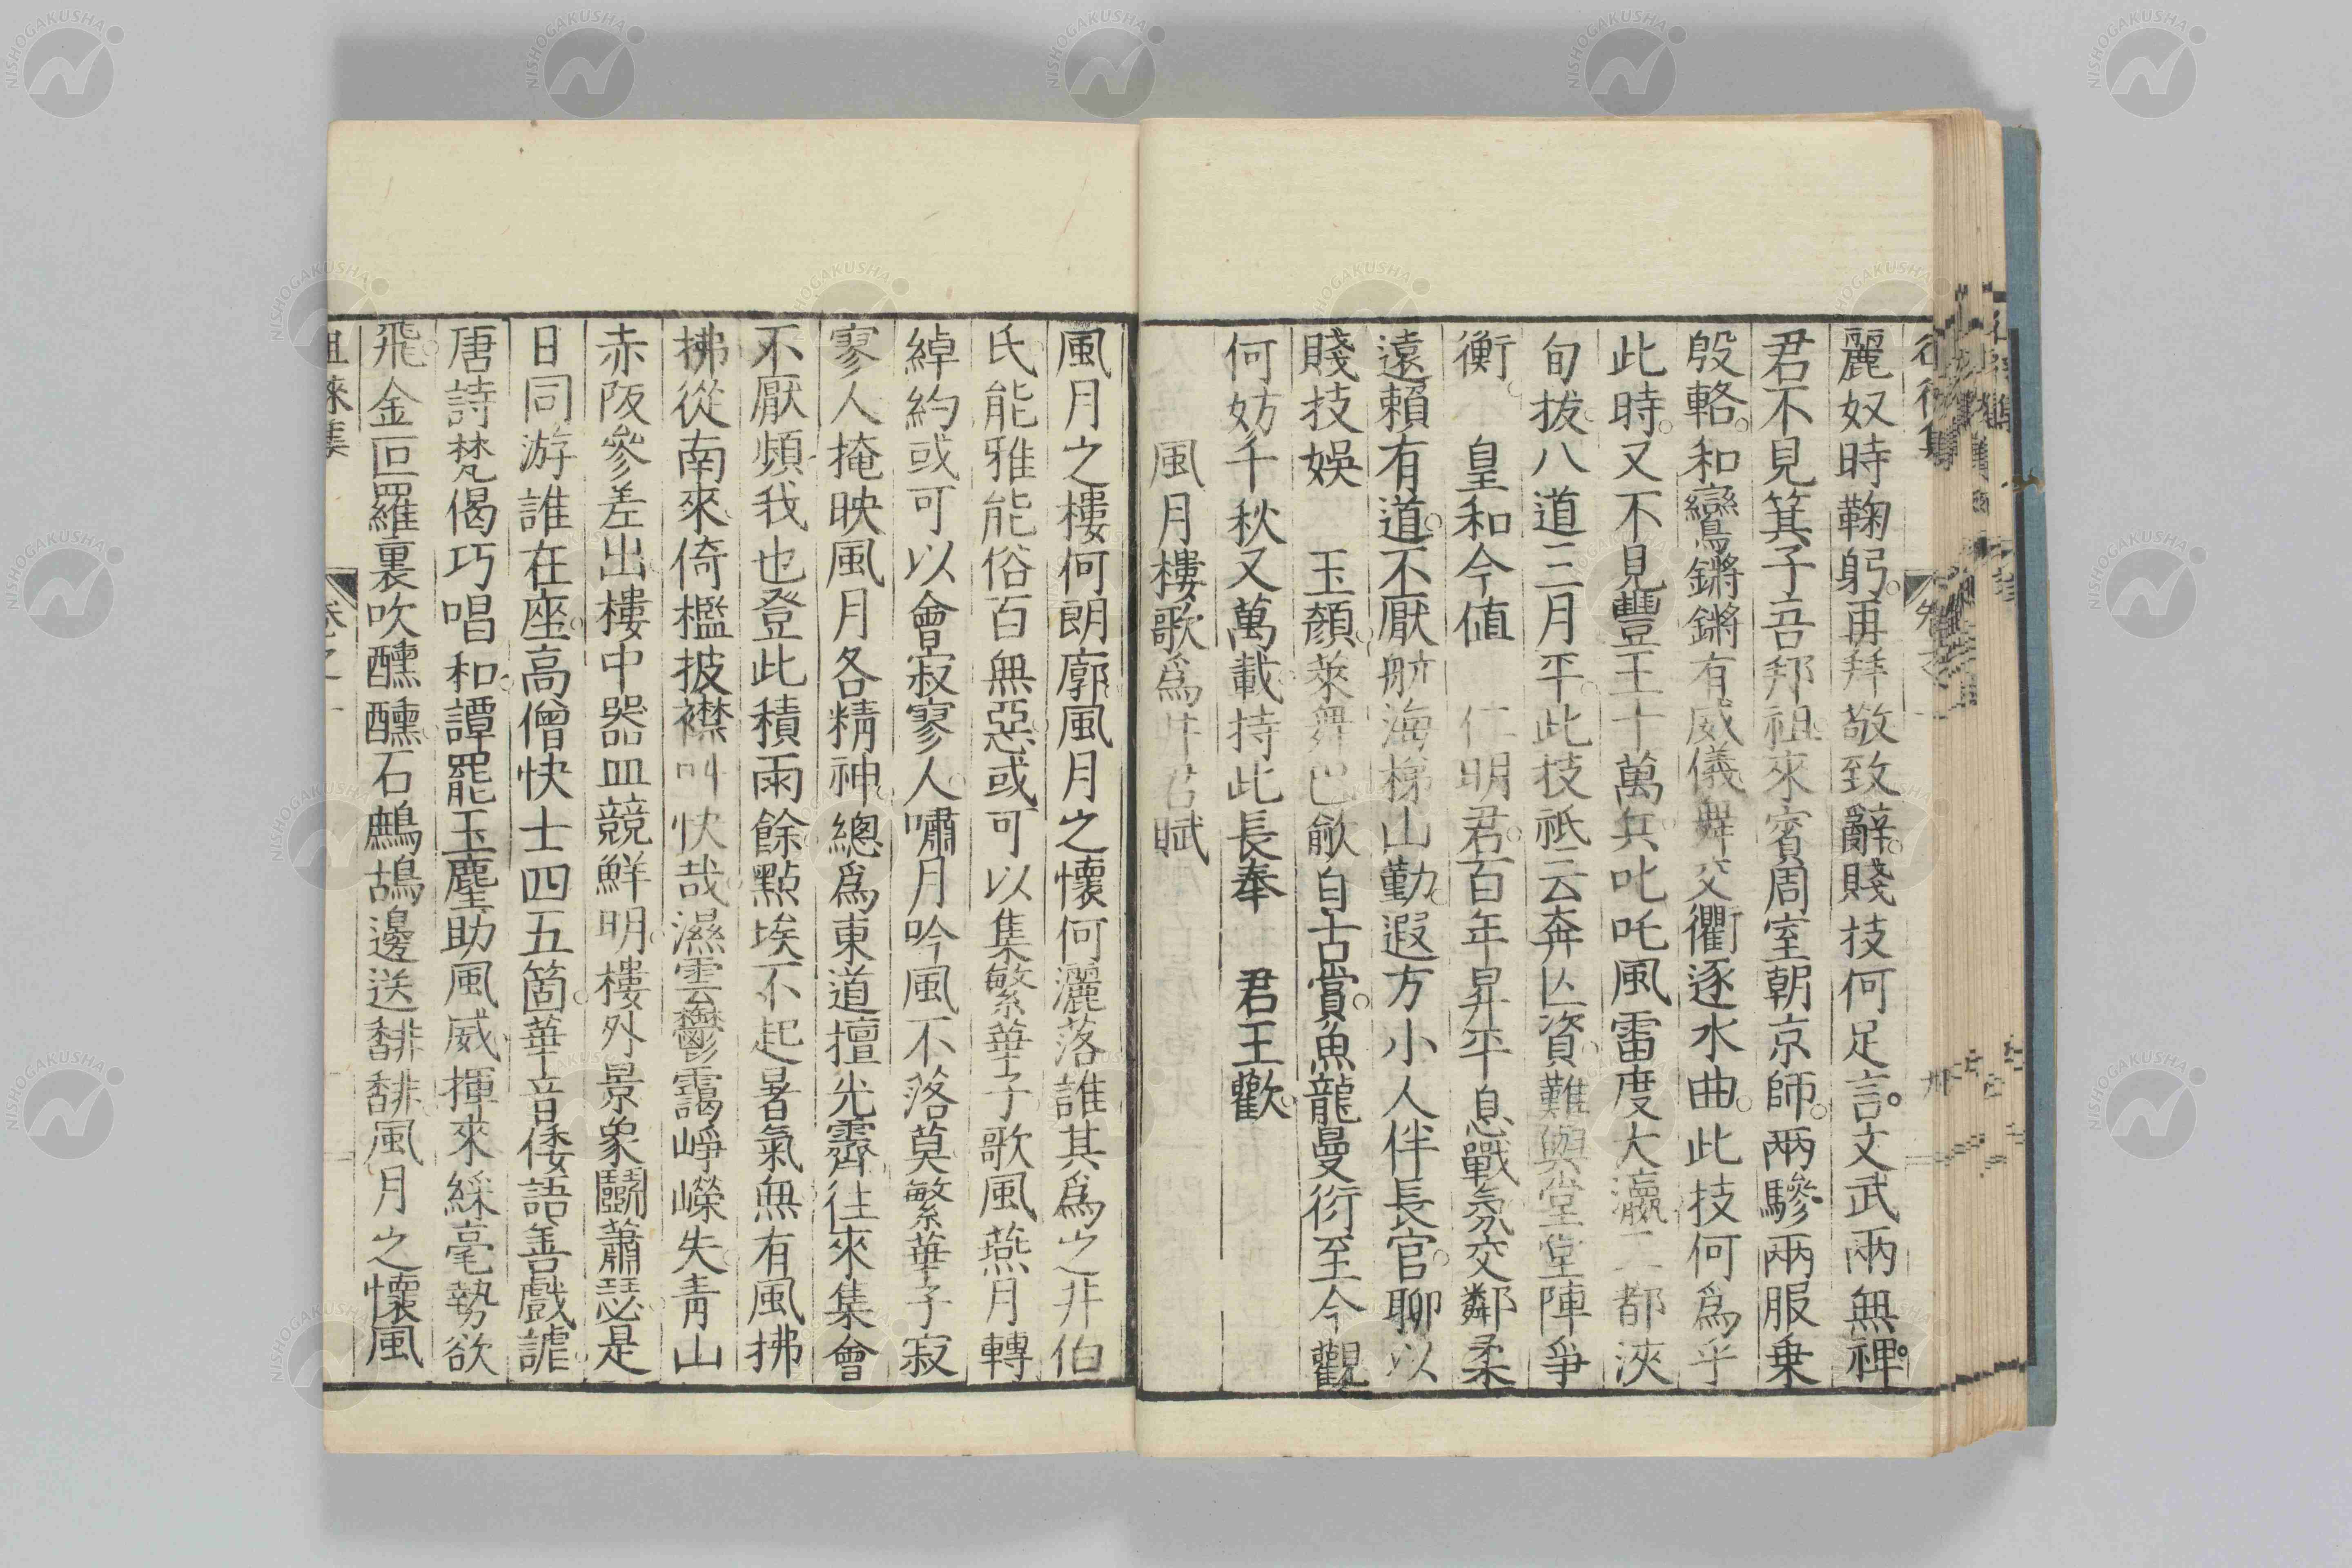 麗奴時鞠躬。再拜敬致辭。賤技何足言。文武兩無裨。
君不見箕子吾邦祖。來賓周室朝京師。兩驂兩服乗
殷輅。和鸞鏘鏘有威儀。舞交衢逐水曲。此技何爲乎
此時。又不見豐王十萬兵。叱吒風雷度大瀛。二都浹
旬拔。八道三月平。此技祇云奔亾資。難與堂堂陣爭
衡。　皇和今値　仁明君。百年昇平息戰氛。交鄰柔
遠賴有道。不厭航海梯山勤。遐方小人伴長官。聊以
賤技娯　玉顏。萊舞巴歈自古賞。魚龍曼衍至今觀。
何妨千秋又萬載。持此長奉　君王歡。
風月樓歌爲井君賦
風月之樓何朗廓。風月之懷何灑落。誰其爲之井伯
氏。能雅能俗百無惡。或可以集繁華子。歌風燕月轉
綽約。或可以會寂寥人。嘯月吟風不落莫。繁華子寂
寥人。掩映風月各精神。總爲東道擅光霽。往來集會
不厭頻。我也登此積雨餘。點埃不起暑氣無。有風拂
拂從南來。倚檻披襟叫快哉。濕雲鬱靄崢嶸失。青山
赤阪參差出。樓中器皿競鮮明。樓外景象鬭蕭瑟。是
日同游誰在座。高僧快士四五箇。華音倭語善戲謔。
唐詩梵偈巧唱和。譚罷玉麈助風威。揮來綵毫勢欲
飛。金叵羅裏吹醺醺。石鷓鴣邊送馡馡。風月之懷風
徂徠集　卷之一